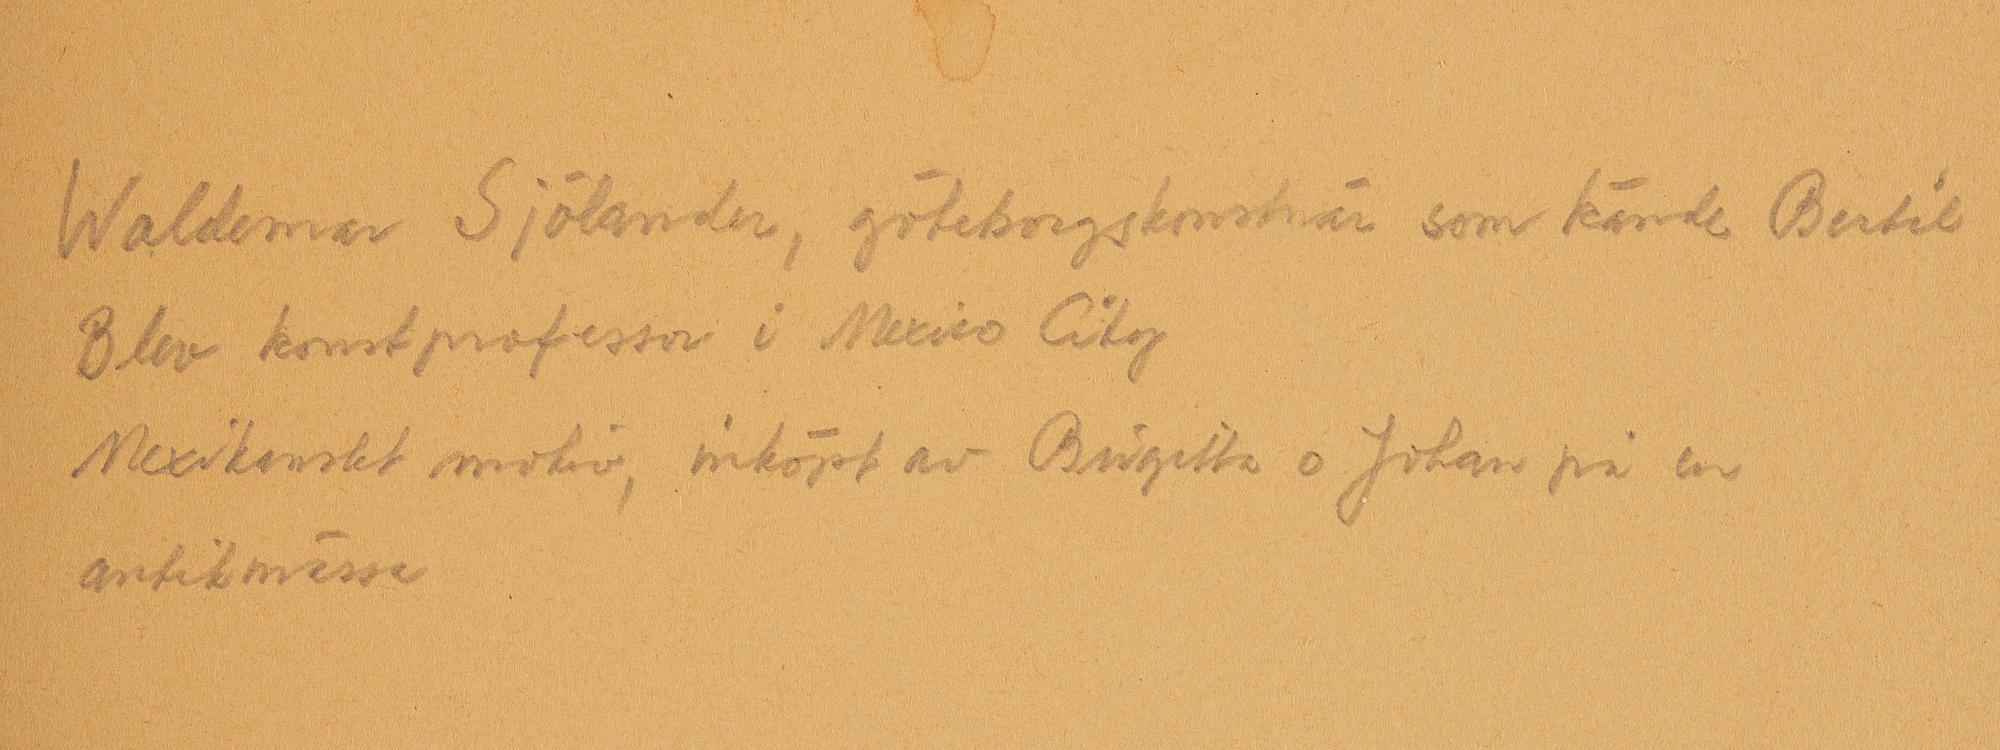 Waldemar Sjölander, göteborgskonstnär som kände Bertil
Blev konstprofessor i Mexico City
Mexikanskt motiv, inköpt av Birgitta o Johan på en
antikmässa